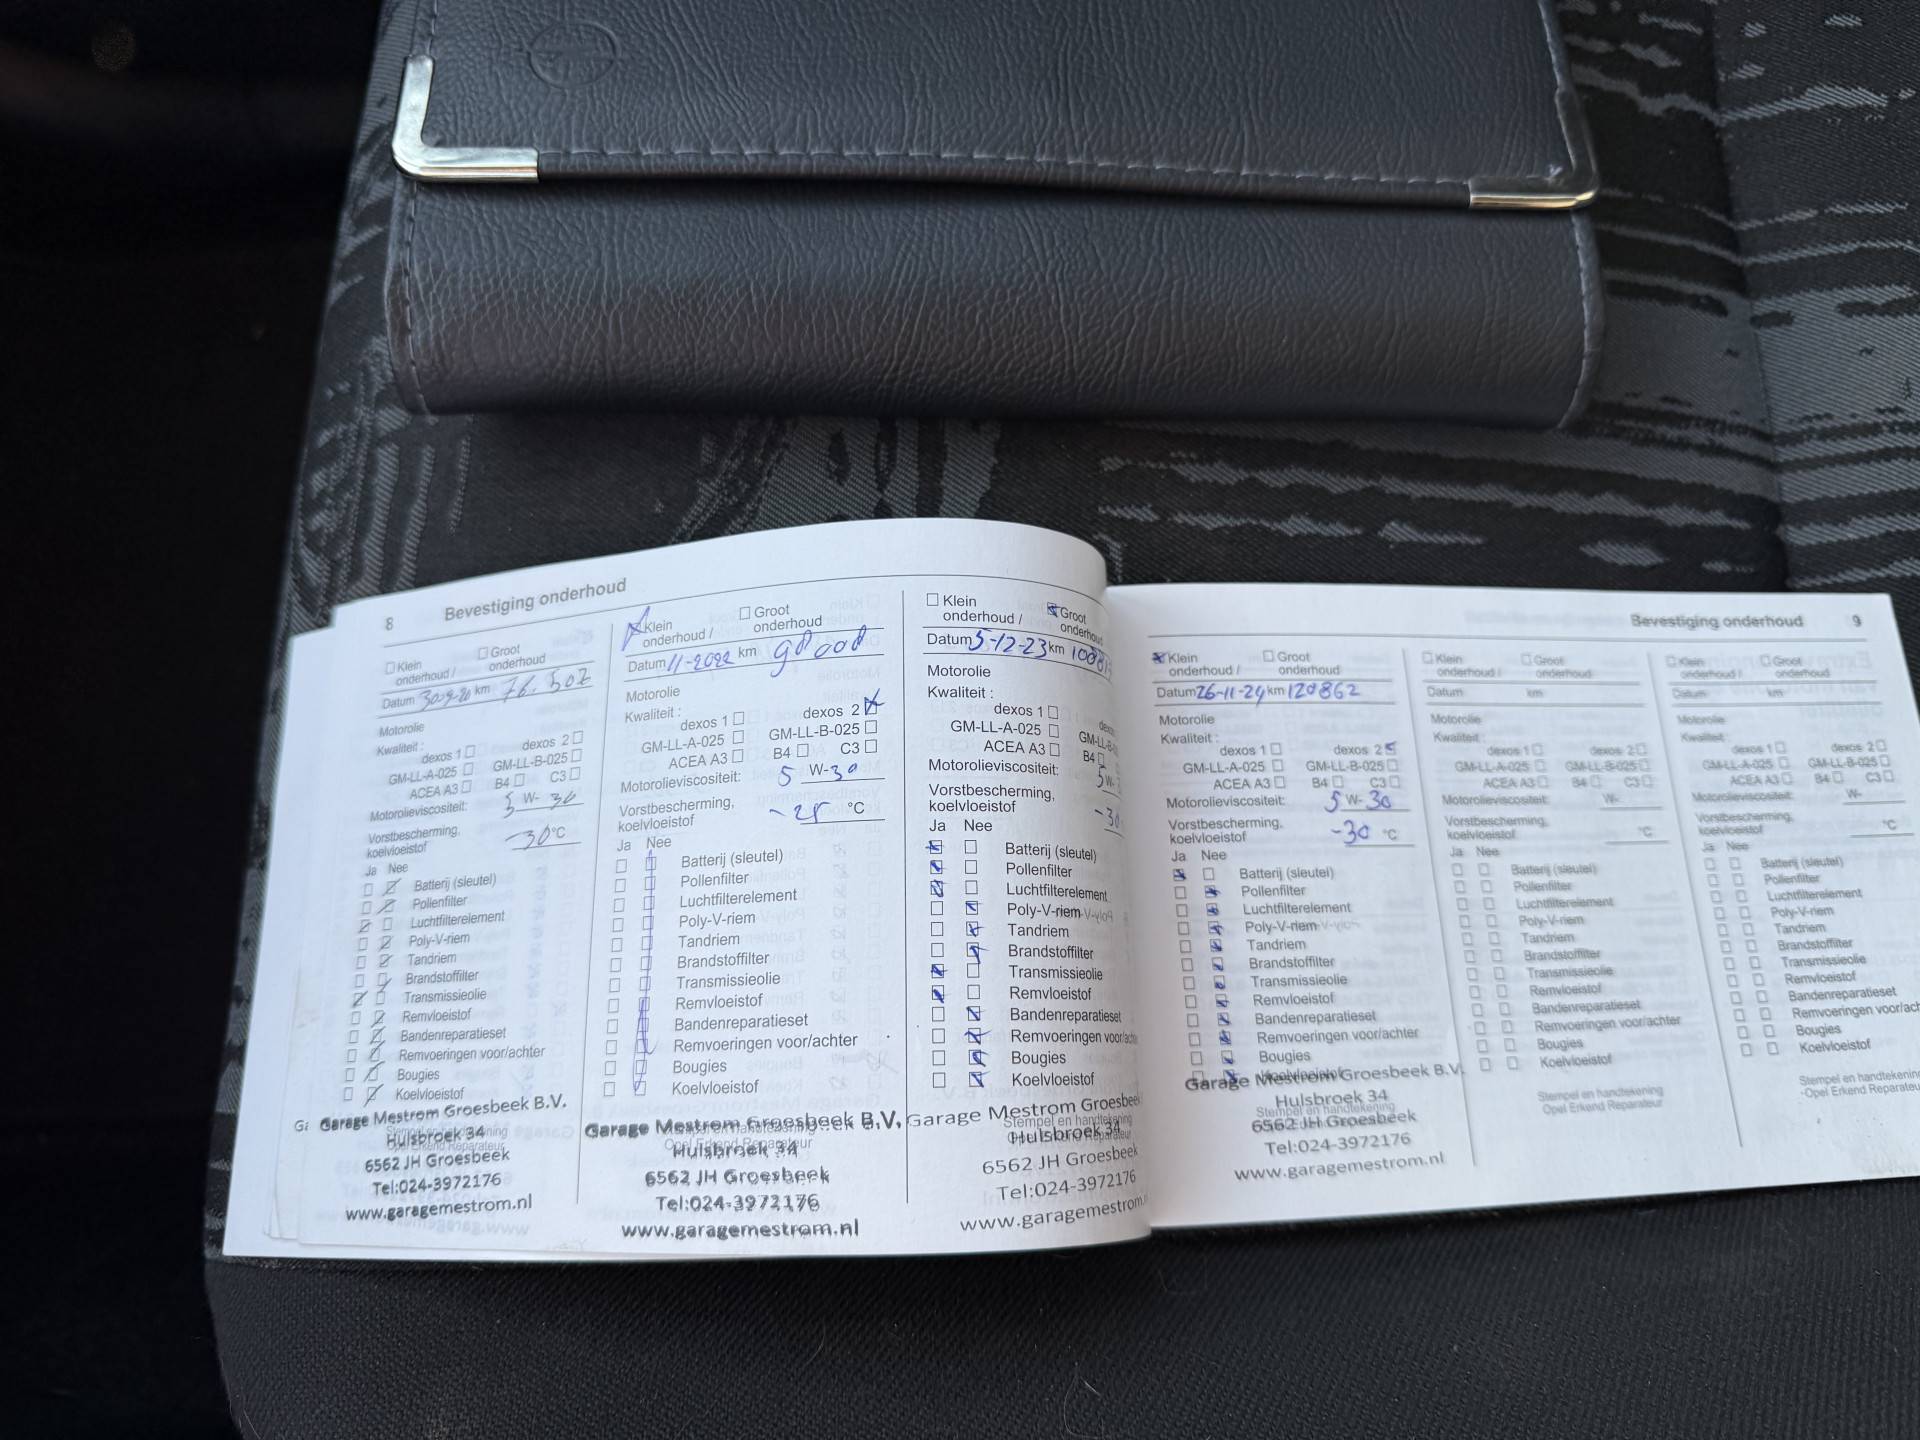 8 Bevestiging onderhoud
Klein onderhoud / Groot onderhoud
Datum 30-9-20 km 76.507
Motorolie
Kwaliteit :
dexos 1 dexos 2
GM-LL-A-025 GM-LL-B-025
ACEA A3 B4 C3
Motorolieviscositeit: 5 W- 30
Vorstbescherming,
koelvloeistof -30 °C
Ja Nee
Batterij (sleutel)
Pollenfilter
Luchtfilterelement
Poly-V-riem
Tandriem
Brandstoffilter
Transmissieolie
Remvloeistof
Bandenreparatieset
Remvoeringen voor/achter
Bougies
Koelvloeistof
Garage Mestrom Groesbeek B.V.
Hulsbroek 34
6562 JH Groesbeek
Tel:024-3972176
www.garagemestrom.nl
Klein onderhoud / Groot onderhoud
Datum 11-2022 km
Motorolie
Kwaliteit :
dexos 1 dexos 2
GM-LL-A-025 GM-LL-B-025
ACEA A3 B4 C3
Motorolieviscositeit: 5 W-30
Vorstbescherming,
koelvloeistof °C
Ja Nee
Batterij (sleutel)
Pollenfilter
Luchtfilterelement
Poly-V-riem
Tandriem
Brandstoffilter
Transmissieolie
Remvloeistof
Bandenreparatieset
Remvoeringen voor/achter
Bougies
Koelvloeistof
Garage Mestrom Groesbeek B.V.
Hulsbroek 34
6562 JH Groesbeek
Tel:024-3972176
www.garagemestrom.nl
Klein onderhoud / Groot onderhoud
Datum 5-12-23 km
Motorolie
Kwaliteit :
dexos 1
GM-LL-A-025
ACEA A3 B4
Motorolieviscositeit: 5 W-
Vorstbescherming,
koelvloeistof -30
Ja Nee
Batterij (sleutel)
Pollenfilter
Luchtfilterelement
Poly-V-riem
Tandriem
Brandstoffilter
Transmissieolie
Remvloeistof
Bandenreparatieset
Remvoeringen voor/
Bougies
Koelvloeistof
Garage Mestrom Groesbeek
Hulsbroek 34
6562 JH Groesbeek
Tel:024-3972176
www.garagemestrom.
Bevestiging onderhoud 9
Klein onderhoud / Groot onderhoud
Datum 26-11-24 km 120862
Motorolie
Kwaliteit :
dexos 1 dexos 2
GM-LL-A-025 GM-LL-B-025
ACEA A3 B4 C3
Motorolieviscositeit: 5 W- 30
Vorstbescherming,
koelvloeistof -30 °C
Ja Nee
Batterij (sleutel)
Pollenfilter
Luchtfilterelement
Poly-V-riem
Tandriem
Brandstoffilter
Transmissieolie
Remvloeistof
Bandenreparatieset
Remvoeringen voor/achter
Bougies
Koelvloeistof
Garage Mestrom Groesbeek B.V.
Hulsbroek 34
Stempel en handtekening
6562 JH Groesbeek
Tel:024-3972176
www.garagemestrom.nl
Klein onderhoud / Groot onderhoud
Datum km
Motorolie
Kwaliteit :
dexos 1 dexos 2
GM-LL-A-025 GM-LL-B-025
ACEA A3 B4 C3
Motorolieviscositeit: W-
Vorstbescherming,
koelvloeistof °C
Ja Nee
Batterij (sleutel)
Pollenfilter
Luchtfilterelement
Poly-V-riem
Tandriem
Brandstoffilter
Transmissieolie
Remvloeistof
Bandenreparatieset
Remvoeringen voor/achter
Bougies
Koelvloeistof
Stempel en handtekening
Opel Erkend Reparateur
Klein onderhoud / Groot onderhoud
Datum km
Motorolie
Kwaliteit :
dexos 1 dexos 2
GM-LL-A-025 GM-LL-B-025
ACEA A3 B4 C3
Motorolieviscositeit: W-
Vorstbescherming,
koelvloeistof °C
Ja Nee
Batterij (sleutel)
Pollenfilter
Luchtfilterelement
Poly-V-riem
Tandriem
Brandstoffilter
Transmissieolie
Remvloeistof
Bandenreparatieset
Remvoeringen voor/
Bougies
Koelvloeistof
Stempel en handtekening
Opel Erkend Reparateur